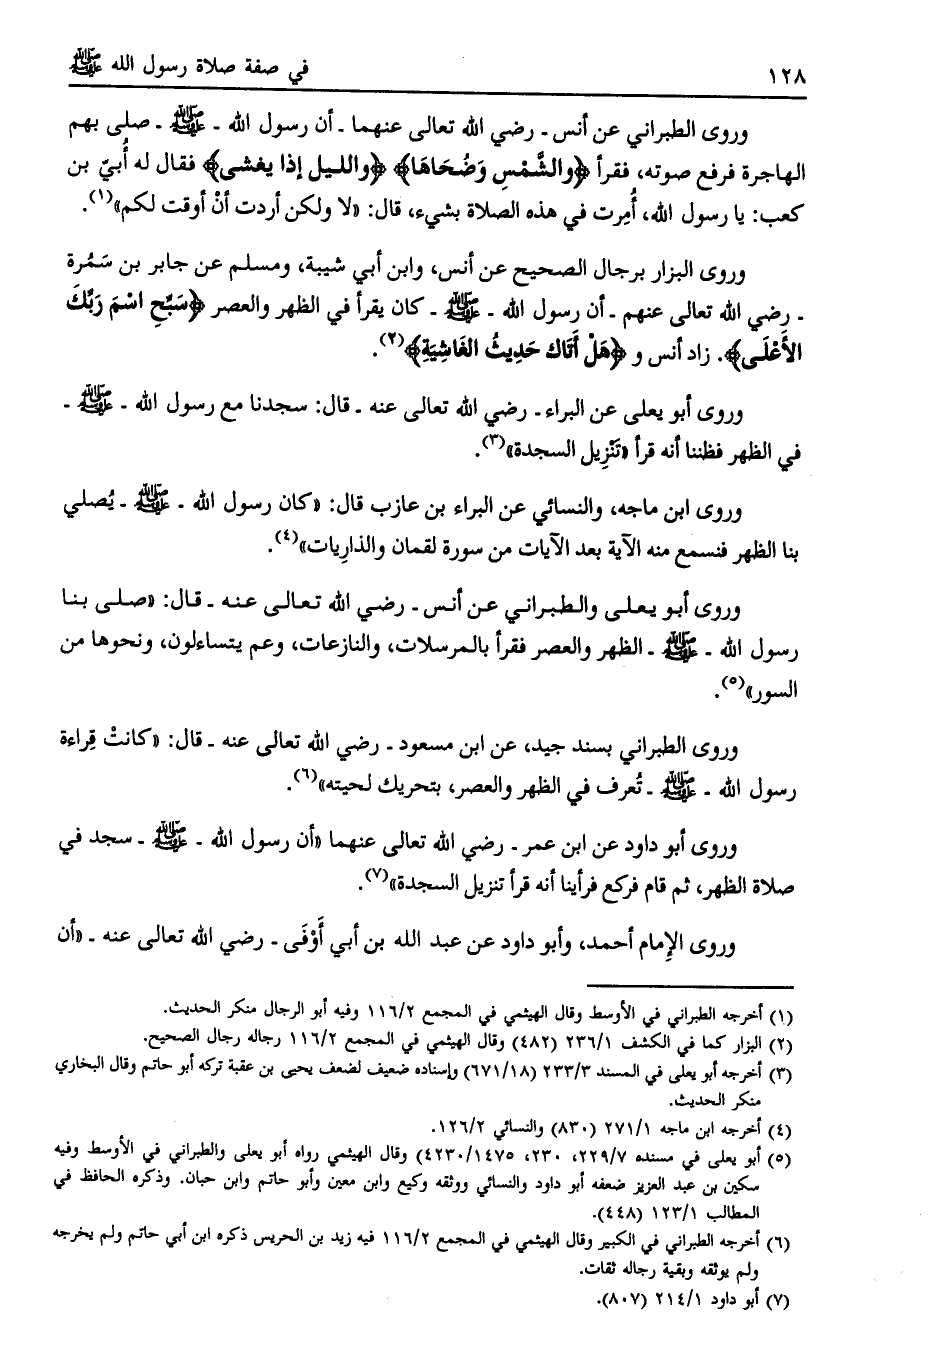 ١٢٨ في صفة صلاة رسول الله ﷺ
وروى الطبراني عن أنس ـ رضي الله تعالى عنهما ـ أن رسول الله ـ ﷺ ـ صلى بهم
الهاجرة فرفع صوته، فقرأ ﴿والشَّمْسِ وَضُحَاهَا﴾ ﴿والليل إذا يغشى﴾ فقال له أُبيّ بن
كعب: يا رسول الله، أُمِرت في هذه الصلاة بشيء، قال: «لا ولكن أردت أنْ أوقت لكم»(١).
وروى البزار برجال الصحيح عن أنس، وابن أبي شيبة، ومسلم عن جابر بن سَمُرة
ـ رضي الله تعالى عنهم ـ أن رسول الله ـ ﷺ ـ كان يقرأ في الظهر والعصر ﴿سَبِّحِ اسْمَ رَبِّكَ
الأَعْلَى﴾. زاد أنس و ﴿هَلْ أَتَاكَ حَدِيثُ الغَاشِيَةِ﴾(٢).
وروى أبو يعلى عن البراء ـ رضي الله تعالى عنه ـ قال: سجدنا مع رسول الله ـ ﷺ ـ
في الظهر فظننا أنه قرأ «تَنْزِيل السجدة»(٣).
وروى ابن ماجه، والنسائي عن البراء بن عازب قال: «كان رسول الله ـ ﷺ ـ يُصلي
بنا الظهر فنسمع منه الآية بعد الآيات من سورة لقمان والذارِيات»(٤).
وروى أبو يعلى والطبراني عن أنس ـ رضي الله تعالى عنه ـ قال: «صلى بنا
رسول الله ـ ﷺ ـ الظهر والعصر فقرأ بالمرسلات، والنازعات، وعم يتساءلون، ونحوها من
السور»(٥).
وروى الطبراني بسند جيد، عن ابن مسعود ـ رضي الله تعالى عنه ـ قال: «كانتْ قِراءة
رسول الله ـ ﷺ ـ تُعرف في الظهر والعصر، بتحريك لحيته»(٦).
وروى أبو داود عن ابن عمر ـ رضي الله تعالى عنهما «أن رسول الله ـ ﷺ ـ سجد في
صلاة الظهر، ثم قام فركع فرأينا أنه قرأ تنزيل السجدة»(٧).
وروى الإمام أحمد، وأبو داود عن عبد الله بن أبي أَوْفَى ـ رضي الله تعالى عنه ـ «أن
(١) أخرجه الطبراني في الأوسط وقال الهيثمي في المجمع ١١٦/٢ وفيه أبو الرجال منكر الحديث.
(٢) البزار كما في الكشف ٢٣٦/١ (٤٨٢) وقال الهيثمي في المجمع ١١٦/٢ رجاله رجال الصحيح.
(٣) أخرجه أبو يعلى في المسند ٢٣٣/٣ (٦٧١/١٨) وإسناده ضعيف لضعف يحيى بن عقبة تركه أبو حاتم وقال البخاري
منكر الحديث.
(٤) أخرجه ابن ماجه ٢٧١/١ (٨٣٠) والنسائي ١٢٦/٢.
(٥) أبو يعلى في مسنده ٢٢٩/٧، ٢٣٠، ٤٢٣٠/١٤٧٥) وقال الهيثمي رواه أبو يعلى والطبراني في الأوسط وفيه
سكين بن عبد العزيز ضعفه أبو داود والنسائي ووثقه وكيع وابن معين وأبو حاتم وابن حبان. وذكره الحافظ في
المطالب ١٢٣/١ (٤٤٨).
(٦) أخرجه الطبراني في الكبير وقال الهيثمي في المجمع ١١٦/٢ فيه زيد بن الحريس ذكره ابن أبي حاتم ولم يخرجه
ولم يوثقه وبقية رجاله ثقات.
(٧) أبو داود ٢١٤/١ (٨٠٧).